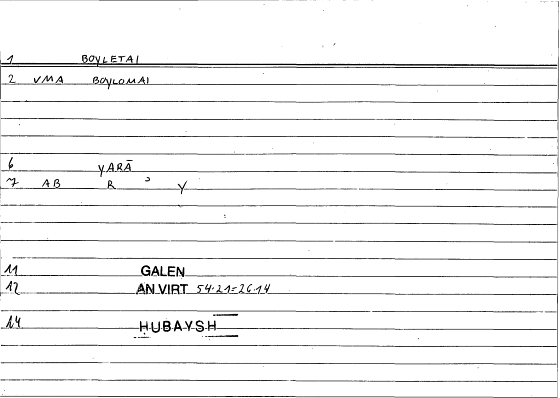 1 BOYLETAI
2 VMA BOYLOMAI
6 YARĀ
7 AB R ʾ Y
11 GALEN
12 AN VIRT 54.21=26.14
14 HUBAYSH